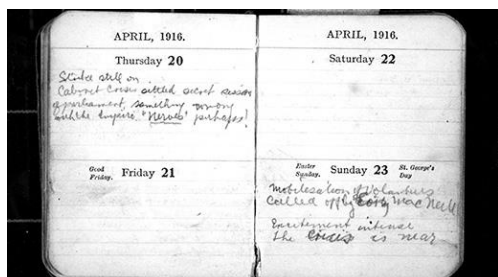 APRIL, 1916.
Thursday 20
Strike still on.
Cabinet Crisis settled secret session
of parliament, something wrong
with the Empire. "Nerves" perhaps!
Good Friday. Friday 21
APRIL, 1916.
Saturday 22
Easter Sunday. Sunday 23 St. George's Day
Mobilisation of Volunteers
Called off by Eoin Mac Neill
Excitement intense
The Crisis is near